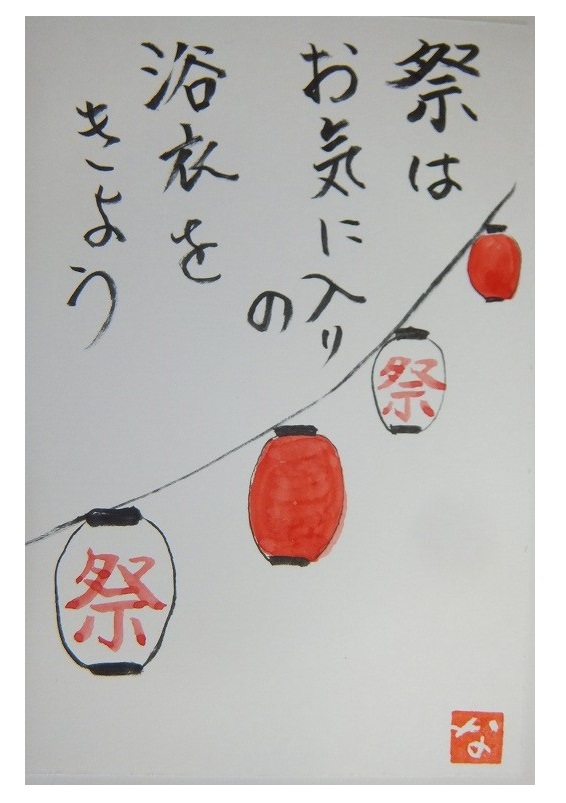 祭は
お気に入り
の
浴衣を
きよう
祭
祭
な